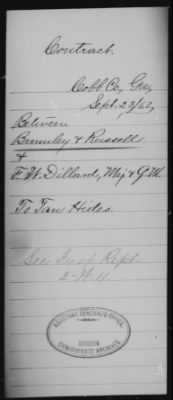 Contract.
Cobb Co, Ga,
Sept. 23/62,
Between
Brumley & Russell
&
F. W. Dillard, Maj & Q.M.
To Tan Hides.
See Insp Rept.
2-W. 11
ADJUTANT GENERAL'S OFFICE,
DIVISION
CONFEDERATE ARCHIVES.